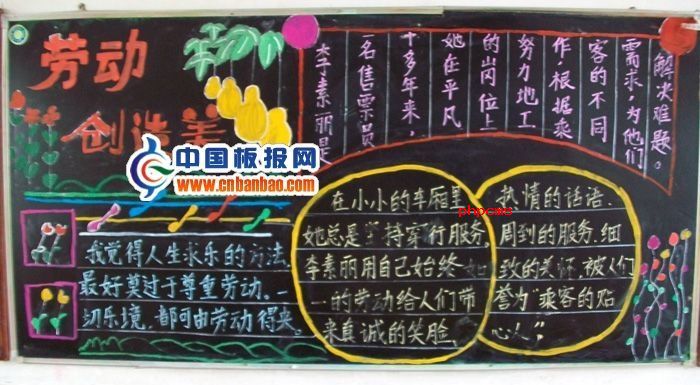 劳动
创造美
中国板报网
www.cnbanbao.com
李素丽是
一名售票员
十多年来,
她在平凡
的岗位上
努力地工
作,根据乘
客的不同
需求,为他们
解决难题。
我觉得人生求乐的方法,
最好莫过于尊重劳动。一
切乐境,都可由劳动得来。
在小小的车厢里
她总是坚持穿行服务,
李素丽用自己始终如
一的劳动给人们带
来真诚的笑脸,
phpcms
热情的话语、
周到的服务、细
致的关怀,被人们
誉为“乘客的贴
心人”。